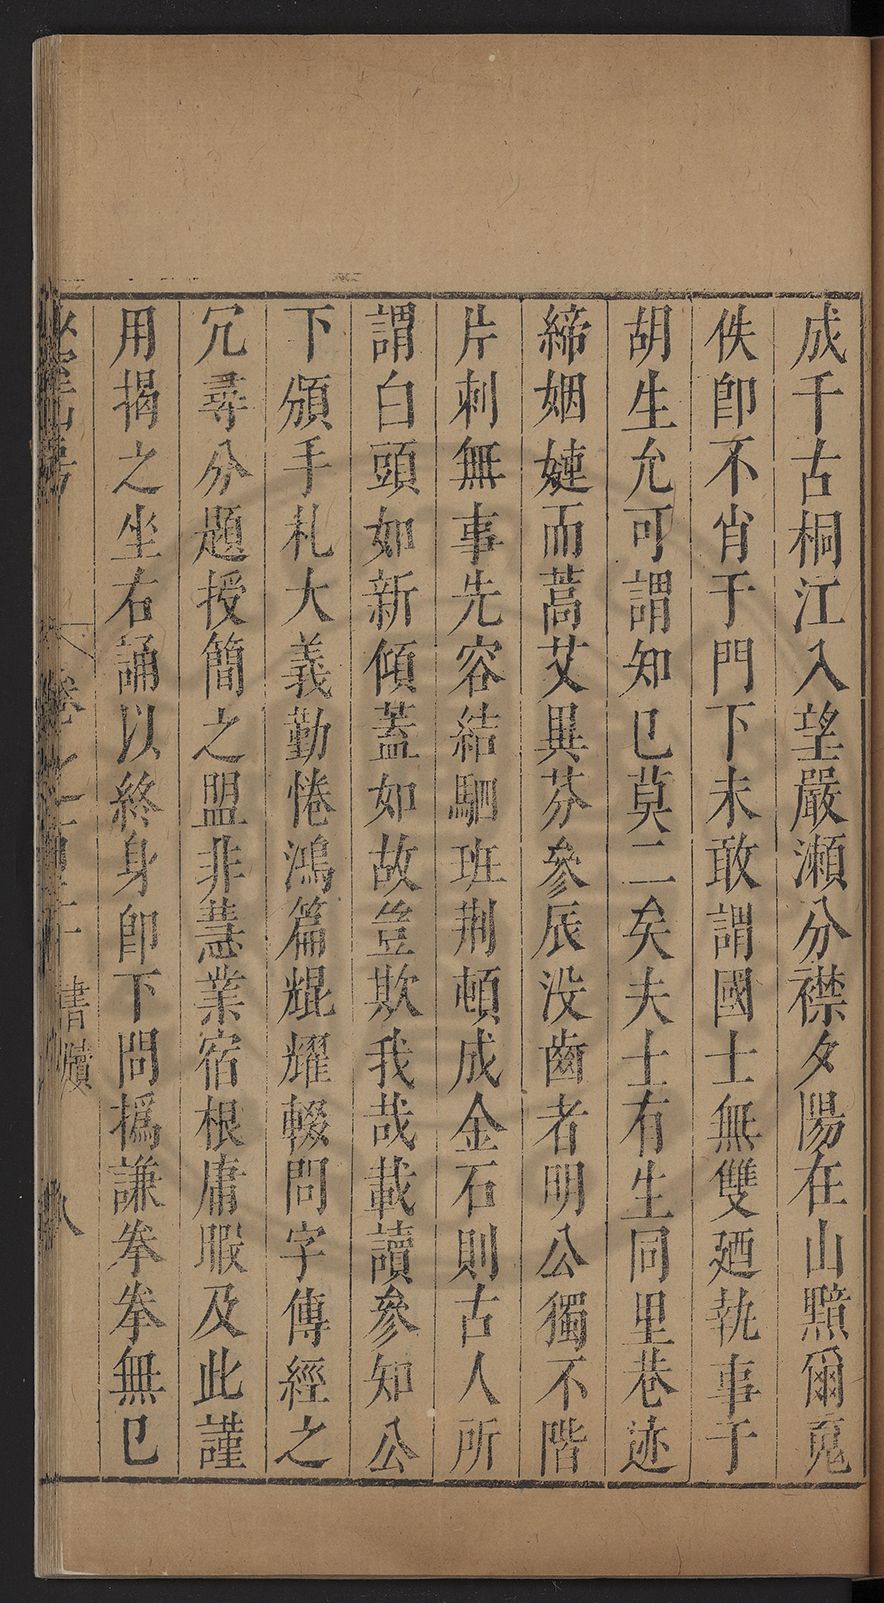 成千古桐江入望嚴瀨分襟夕陽在山黯爾䰟
佚卽不肖于門下未敢謂國士無雙廼執事于
胡生允可謂知巳莫二矣夫士有生同里巷迹
締姻嫿而蒿艾異芬參辰没齒者明公獨不階
片刺無事先容結駟班荆頓成金石則古人所
謂白頭如新傾蓋如故豈欺我哉載讀參知公
下頒手札大義勤惓鴻篇焜耀輟問字傳經之
冗尋分題授簡之盟非慧業宿根庸暇及此謹
用揭之坐右誦以終身卽下問撝謙拳拳無巳
卷之 書牘 八